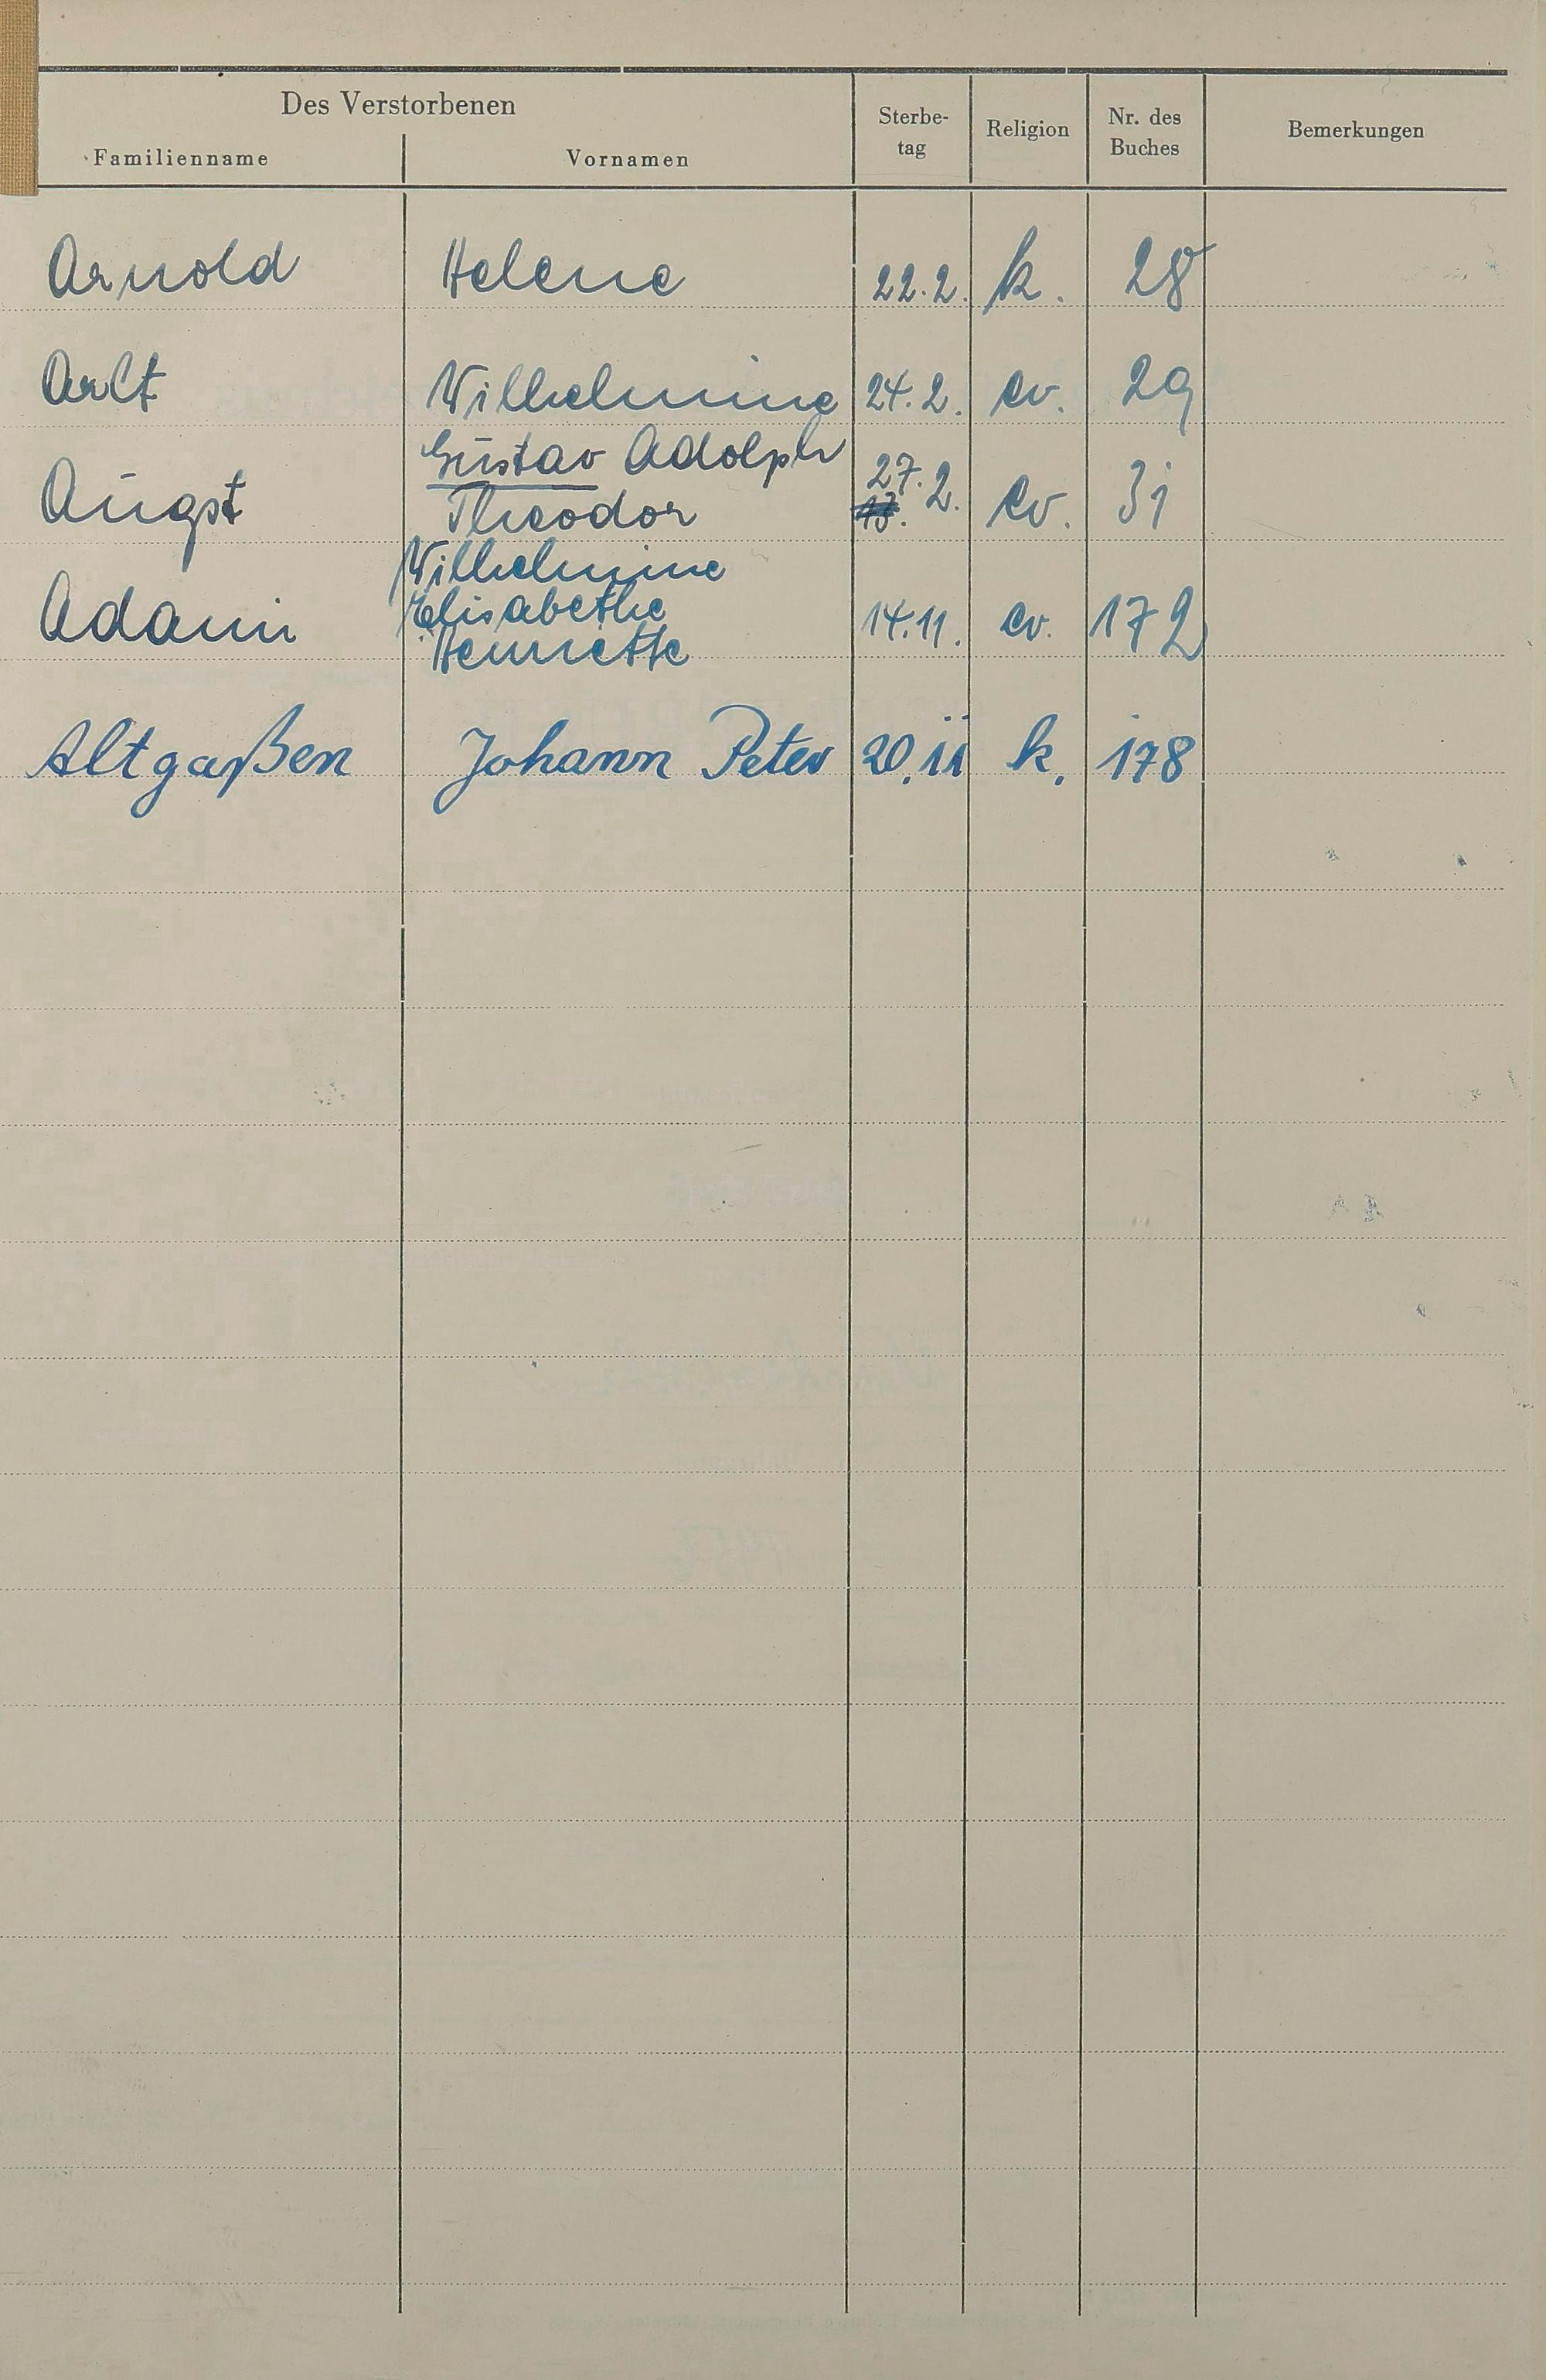 Des Verstorbenen
Familienname Vornamen Sterbe-tag Religion Nr. des Buches Bemerkungen
Arnold Helene 22.2. k. 28
Arlt Wilhelmine 24.2. ev. 29
Gustav Adolph
Augst Theodor 27.2. ev. 31
Wilhelmine
Elisabethe
Adami Henriette 14.11. ev. 172
Altgaßen Johann Peter 20.11 k. 178